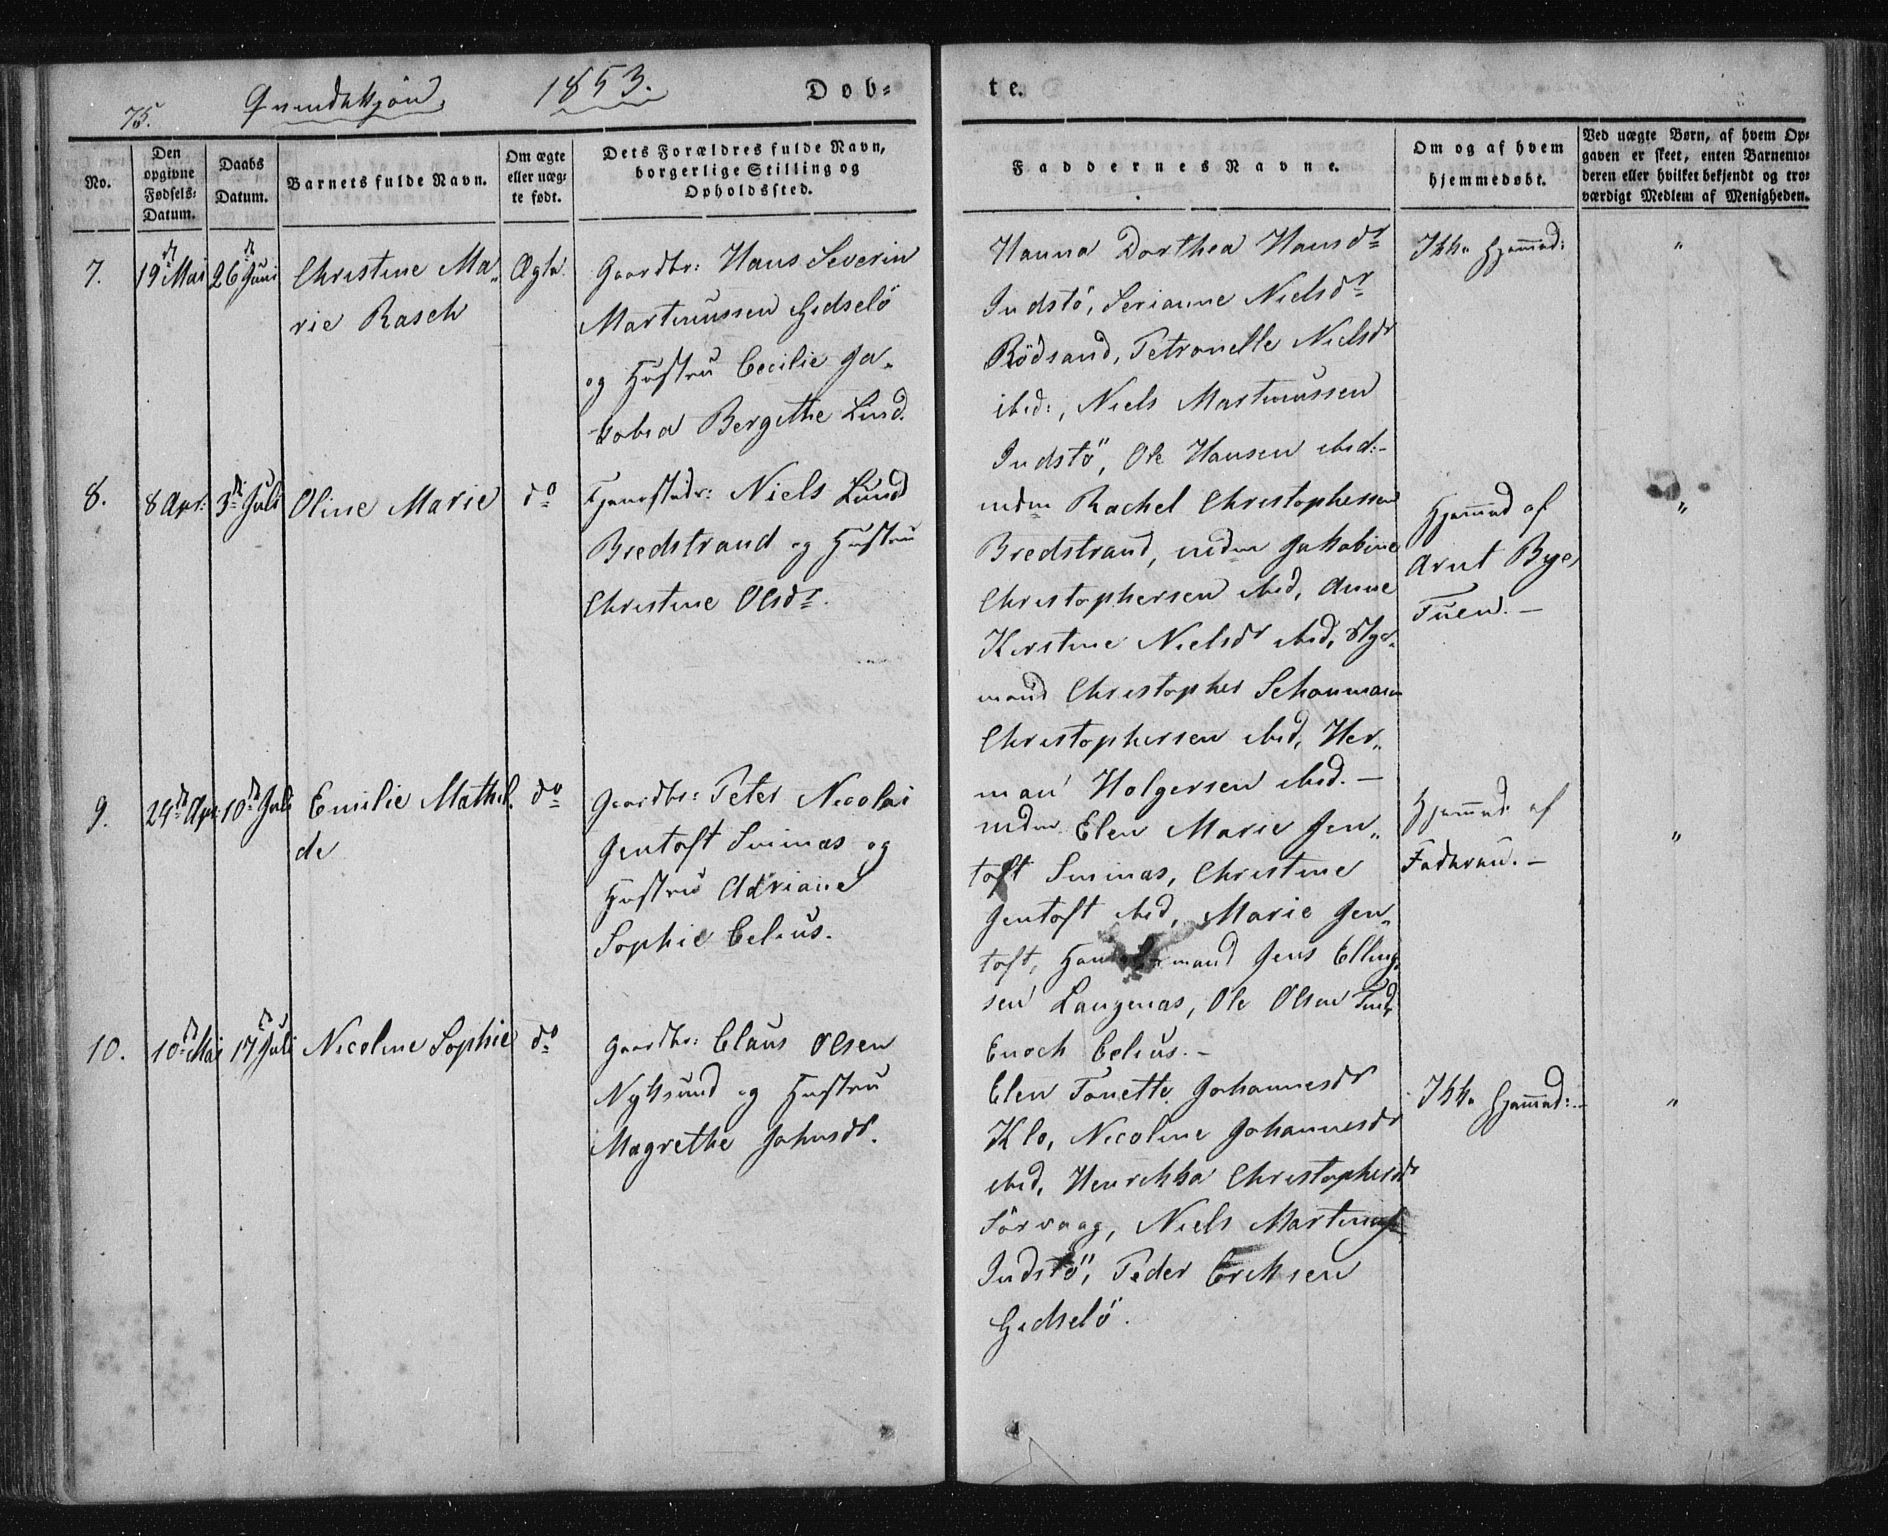 75. Qvindekjön. 1853. Dob=
te.
No.
Den opgivne Fødsels= Datum.
Daabs Datum.
Barnets fulde Navn.
Om ægte eller uæg= te født.
Dets Forældres fulde Navn, borgerlige Stilling og Opholdssted.
Faddernes Navne.
Om og af hvem hjemmedøbt.
Ved uægte Børn, af hvem Op= gaven er skeet, enten Barnemo= deren eller hvilket bekjendt og tro= værdigt Medlem af Menigheden.
7. 19 Mai 26 Juni Christine Ma„ Ægte. Gaardbr: Hans Severin
rie Rasch Martinussen Gidselö
og Hustru Cecilie Ja„
kobia Bergithe Lind.
Hanna Dorthea Hansdr Ikke Hjemmed: "
Indstö, Serianne Nielsdr
Rödsand, Petronelle Nielsdr
ibid:, Niels Martinussen
Indstö, Ole Hansen ibid:-
8. 8 Apr: 3d Juli Oline Marie do Niels Lund
Bredstrand og Hustru
Christine Olsdr.
Rachel Christophersen Hjemmed af "
Bredstrand, Jakobine Arnt Bye,
Christophersen ibid, Anne Tuen. -
Kirstine Nielsdr ibid, Styr„
mand Christopher Schonmann
Christophersen ibid, Her„
man Holgersen ibid. -
9. 24d Apr: 10d Juli Emilie Mathil„ do Gaardbr: Peter Nicolai
de Jentoft Smines og
Hustru Adriane
Sophie Celius.
Elen Marie Jen„ Hjemmed af "
toft Smines, Christine Faderen. -
Jentoft ibid, Marie Jen„
toft, mand Jens Elling„
sen Langenæs, Ole Olsen
Enoch Celius. -
10. 10d Mai 17d Juli Nicoline Sophie do Gaardbr: Claus Olsen
Nyksund og Hustru
Magrethe Johnsdr.
Elen Tonette Johannesdr Ikke Hjemmed: - "
Klo, Nicoline Johannesdr
ibid, Henrikka Christophersdr
Sörvaag, Niels
Indstö, Peder Eriksen
Gidselö.